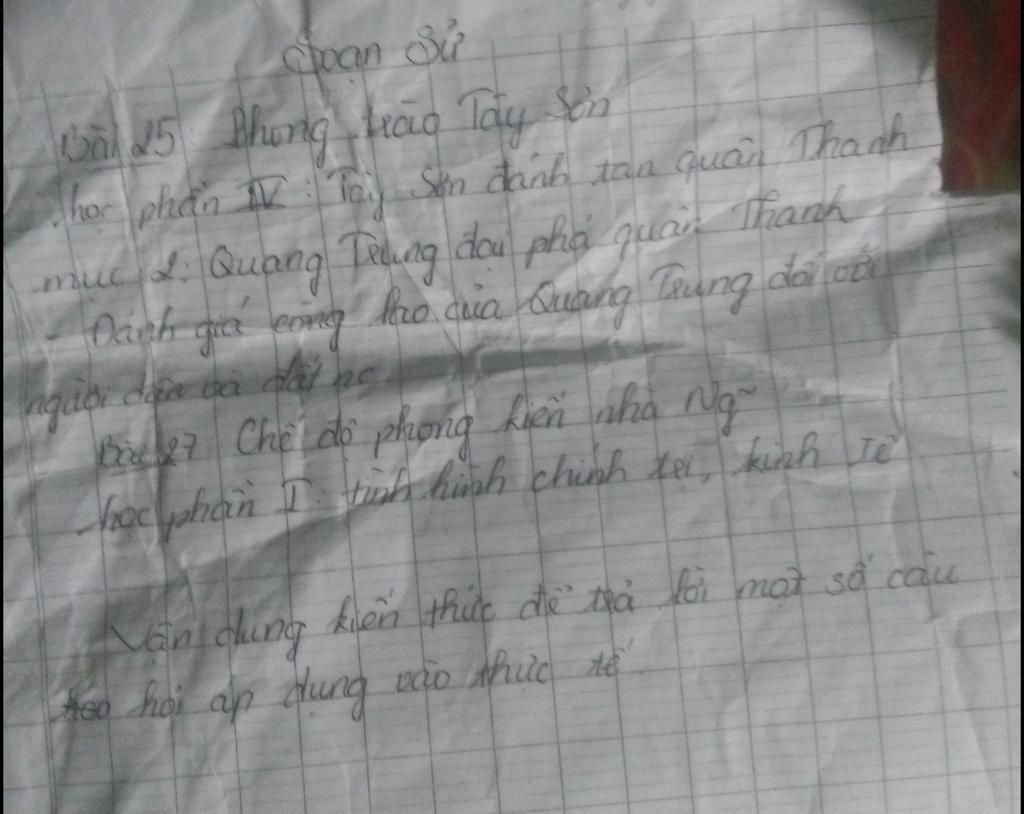 Soạn Sử
Bài 25: Phong trào Tây Sơn
học phần IV: Tây Sơn đánh tan quân Thanh
mục 2: Quang Trung đại phá quân Thanh
- Đánh giá công lao của Quang Trung đối với
người dân và đất nc
Bài 27 Chế độ phong kiến nhà Ng~
học phần I: tình hình chính trị, kinh tế
Vận dụng kiến thức để trả lời một số câu
hỏi áp dụng vào thực tế